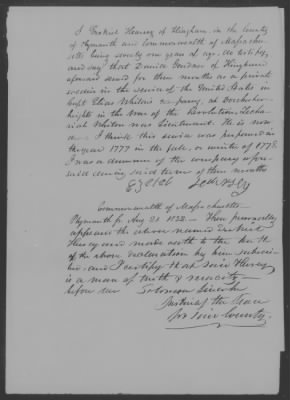 I Ezekiel Hersey of Hingham, in the County
of Plymouth and Commonwealth of Massachu-
setts being seventy one years of age do testify
and say that Daniel Gardner of Hingham
aforesaid served for three months as a private
soldier in the service of the United States in
Capt Elias Whiton's company, at Dorchester
heights in the War of the Revolution. Zecha-
riah Whiton was Lieutenant. He is now
I think this service was performed in
the year 1777 in the fall, or winter of 1778
I was a drummer of the company afore-
said during said term of three months
Ezekiel Hersey
Commonwealth of Massachusetts
Plymouth ss Aug 21 1832 - Then personally
appeared the above named Ezekiel
Hersey and made oath to the truth
of the above declaration by him subscri-
bed - and I certify that said Hersey
is a man of truth & veracity
before me Solomon Lincoln
Justice of the Peace
for said County.